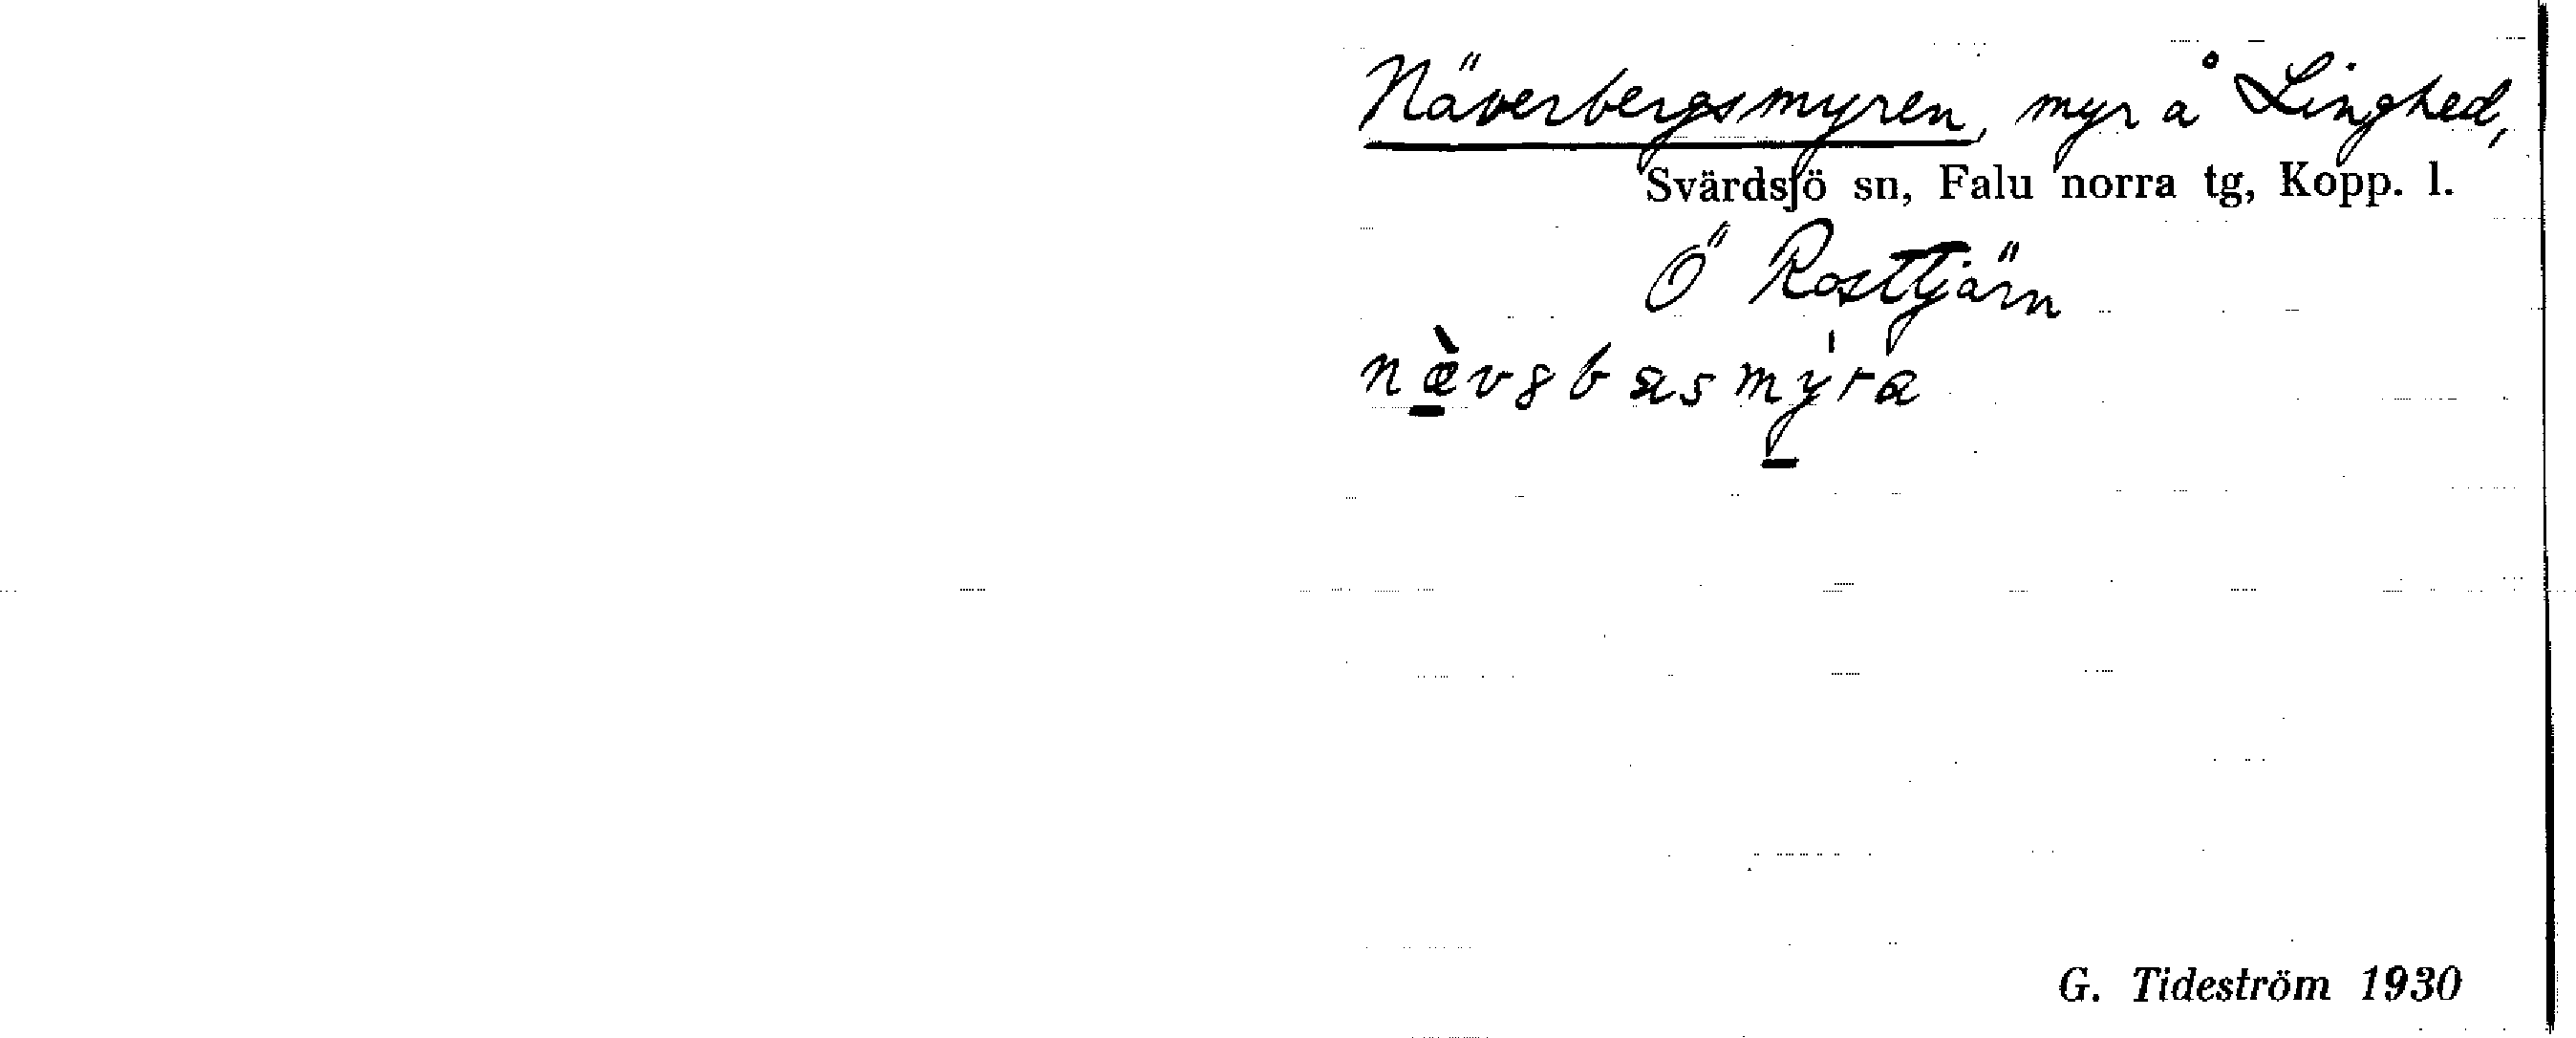 Näverbergsmyren, myr å Linghed,
Svärdsjö sn, Falu norra tg, Kopp. l.
Ö Rosttjärn
næ̀vsbasmýra
G. Tideström 1930